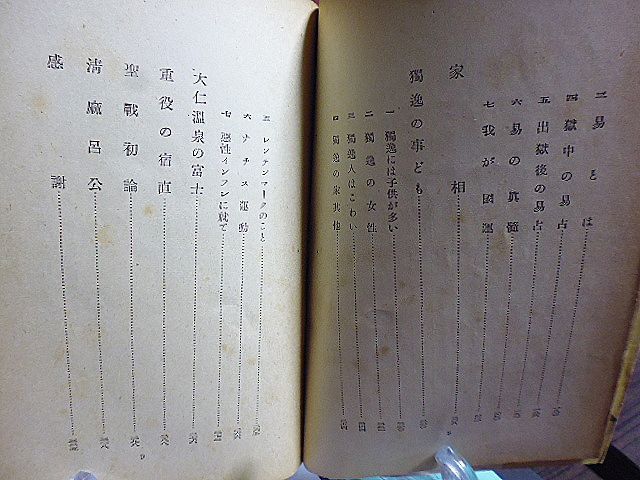 三 易とは
四 獄中の易占
五 出獄後の易占
六 易の眞髓
七 我が國運
家相
獨逸の事ども
一 獨逸には子供が多い
二 獨逸の女性
三 獨逸人はこわい
四 獨逸の家其他
五 レンテンマークのこと
六 ナチス運動
七 惡性インフレに就て
大仁溫泉の富士
重役の宿直
聖戰初論
淸麻呂公
感謝